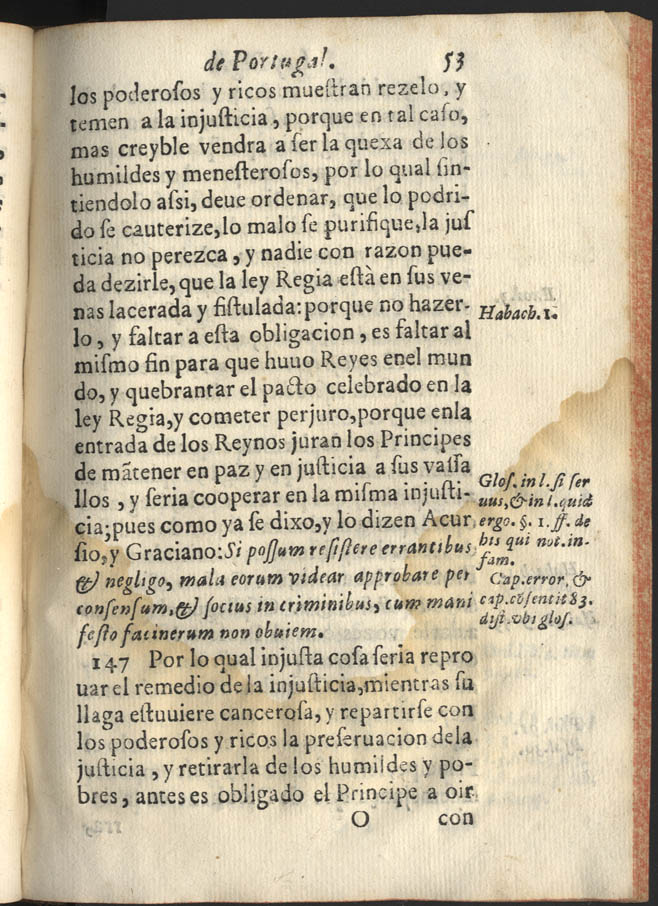 de Portugal. 53
los poderoſos y ricos mueſtran rezelo, y
temen a la injuſticia, porque en tal caſo,
mas creyble vendra a ſer la quexa de los
humildes y meneſteroſos, por lo qual ſin-
tiendolo aſsi, deue ordenar, que lo podri-
do ſe cauterize, lo malo ſe purifique, la juſ
ticia no perezca, y nadie con razon pue-
da dezirle, que la ley Regia eſtà en ſus ve-
nas lacerada y fiſtulada: porque no hazer-
lo, y faltar a eſta obligacion, es faltar al
miſmo fin para que huuo Reyes enel mun
do, y quebrantar el pacto celebrado en la
ley Regia, y cometer perjuro, porque enla
entrada de los Reynos juran los Principes
de mãtener en paz y en juſticia a ſus vaſſa
llos, y ſeria cooperar en la miſma injuſti-
cia; pues como ya ſe dixo, y lo dizen Acur
ſio, y Graciano: Si poſſum reſiſtere errantibus
& negligo, mala eorum videar approbare per
conſenſum, & ſocius in criminibus, cum mani
feſto facinerum non obuiem.
147 Por lo qual injuſta coſa ſeria repro
uar el remedio de la injuſticia, mientras ſu
llaga eſtuuiere canceroſa, y repartirſe con
los poderoſos y ricos la preſeruacion dela
juſticia, y retirarla de los humildes y po-
bres, antes es obligado el Principe a oir
O con
Habach. 1.
Gloſ. in l. ſi ſer
uus, & in l. quid
ergo. §. 1. ff. de
his qui not. in-
fam.
Cap. error, &
cap. cõſentit 83.
diſt. vbi gloſ.